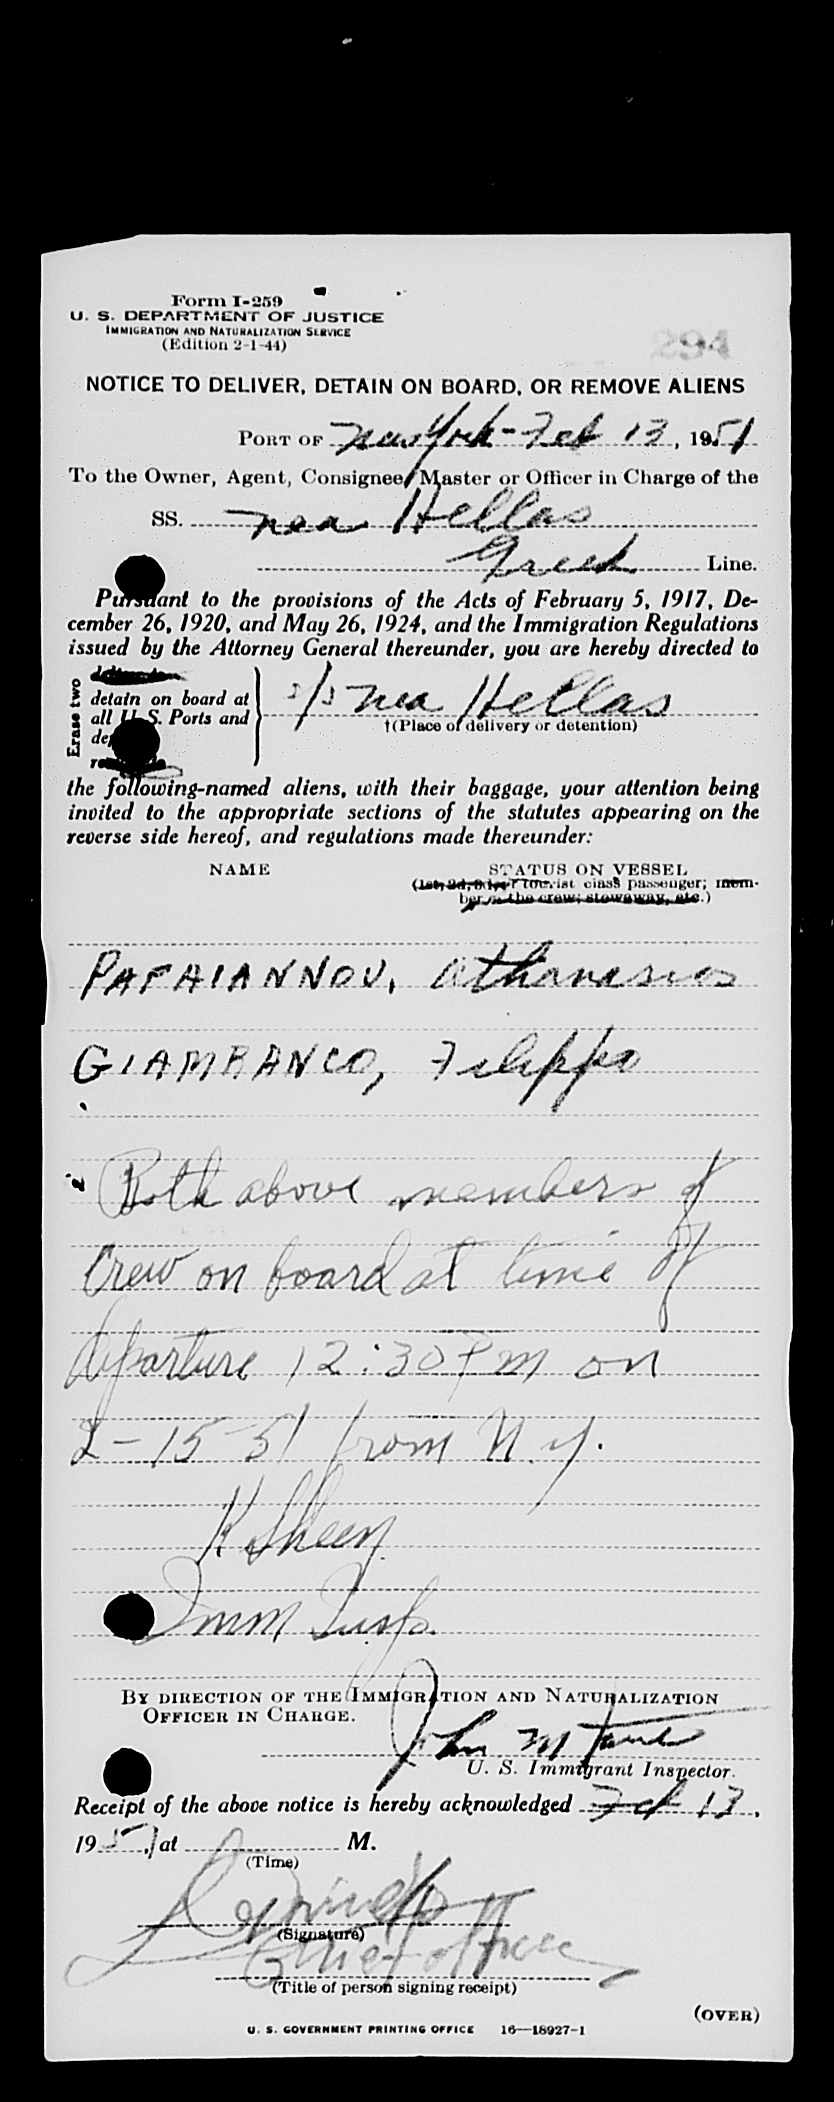 Form I-259
U. S. DEPARTMENT OF JUSTICE
IMMIGRATION AND NATURALIZATION SERVICE
(Edition 2-1-44)
294
NOTICE TO DELIVER, DETAIN ON BOARD, OR REMOVE ALIENS
PORT OF New York - Feb 13, 1951
To the Owner, Agent, Consignee, Master or Officer in Charge of the
SS. Nea Hellas
Greek Line.
Pursuant to the provisions of the Acts of February 5, 1917, De-
cember 26, 1920, and May 26, 1924, and the Immigration Regulations
issued by the Attorney General thereunder, you are hereby directed to
Erase two
detain on board at
all U. S. Ports and
s/s Nea Hellas
†(Place of delivery or detention)
the following-named aliens, with their baggage, your attention being
invited to the appropriate sections of the statutes appearing on the
reverse side hereof, and regulations made thereunder:
NAME STATUS ON VESSEL
(1st, 2d, 3d, or tourist class passenger; mem-
ber of the crew; stowaway, etc.)
PAPAIANNOU, Athanasios
GIAMBANCO, Filippo
Both above members of
Crew on board at time of
departure 12:30 PM on
2-15-51 from N.Y.
K Sheen
Imm Insp.
BY DIRECTION OF THE IMMIGRATION AND NATURALIZATION
OFFICER IN CHARGE.
John M
U. S. Immigrant Inspector.
Receipt of the above notice is hereby acknowledged Feb 13,
1951 at M.
(Time)
(Signature)
Chief officer
(Title of person signing receipt)
(OVER)
U. S. GOVERNMENT PRINTING OFFICE 16—18927-1